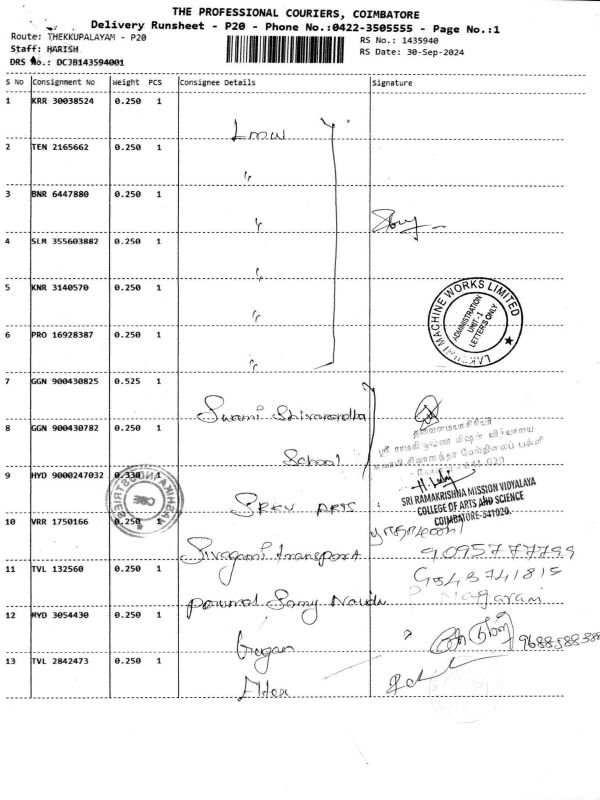 THE PROFESSIONAL COURIERS, COIMBATORE
Delivery Runsheet - P20 - Phone No.:0422-3505555 - Page No.:1
Route: THEKKUPALAYAM - P20
RS No.: 1435940
Staff: HARISH
RS Date: 30-Sep-2024
DRS No.: DCJB143594001
S No Consignment No Weight PCS Consignee Details Signature
1 KRR 30038524 0.250 1
Lmw
2 TEN 2165662 0.250 1
"
3 BNR 6447880 0.250 1
"
4 SLM 355603882 0.250 1
"
5 KNR 3140570 0.250 1
"
LAKSHMI MACHINE WORKS LIMITED
ADMINISTRATION
UNIT - I
LETTER'S ONLY
6 PRO 16928387 0.250 1
"
7 GGN 900430825 0.525 1
Swami Shivanandha
8 GGN 900430782 0.250 1
School
தலைமையாசிரியர்
9 HYD 9000247032 0.330 1
SRKV ARTS
SRI RAMAKRISHNA MISSION VIDYALAYA
COLLEGE OF ARTS AND SCIENCE
COIMBATORE-641020.
10 VRR 1750166 0.250 1
Sivagami transport
9095777799
11 TVL 132560 0.250 1
Samy Naidu
Nagaram
12 MYD 3054430 0.250 1
9688588388
13 TVL 2842473 0.250 1